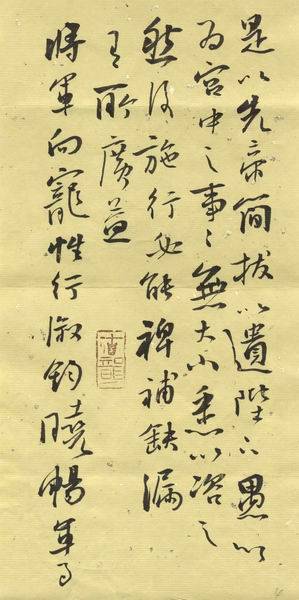 是以先帝簡拔以遺陛下愚以
為宮中之事〻無大小悉以咨之
然後施行必能裨補缺漏
有所廣益
將軍向寵性行淑鈞曉暢軍事